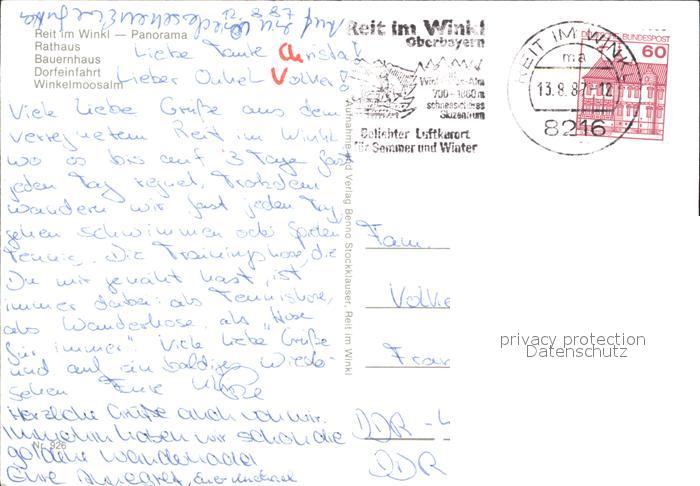 12.8.87
Auf Wiedersehen Eure Anke
Reit im Winkl — Panorama
Rathaus
Bauernhaus
Dorfeinfahrt
Winkelmoosalm
Liebe Tante Christa!
Lieber Onkel Volker!
Viele liebe Grüße aus dem
verregneten Reit im Winkl
wo es bis auf 3 Tage fast
jeden Tag regnet. Trotzdem
wandern wir fast jeden Tag
gehen schwimmen oder spielen
Tennis. Die Trainingshose, die
Du mir genäht hast, ist
immer dabei: als Tennishose,
als Wanderhose, als "Hose
für immer". Viele liebe Grüße
und auf ein baldiges Wieder-
sehen Eure
Herzliche Grüße auch von mir.
Immerhin haben wir schon die
goldene Wandernadel
Eure Annegret, Euer Michael
Nr. 926
Aufnahme und Verlag Benno Stockklauser, Reit im Winkl
Reit im Winkl
Oberbayern
700 - 1800 m
schneesicheres
Skizentrum
Beliebter Luftkurort
für Sommer und Winter
REIT IM WINKL
ma
13.8.87-12
8216
DEUTSCHE BUNDESPOST
60
Fam.
Volke
Fran
DDR -
DDR
privacy protection
Datenschutz